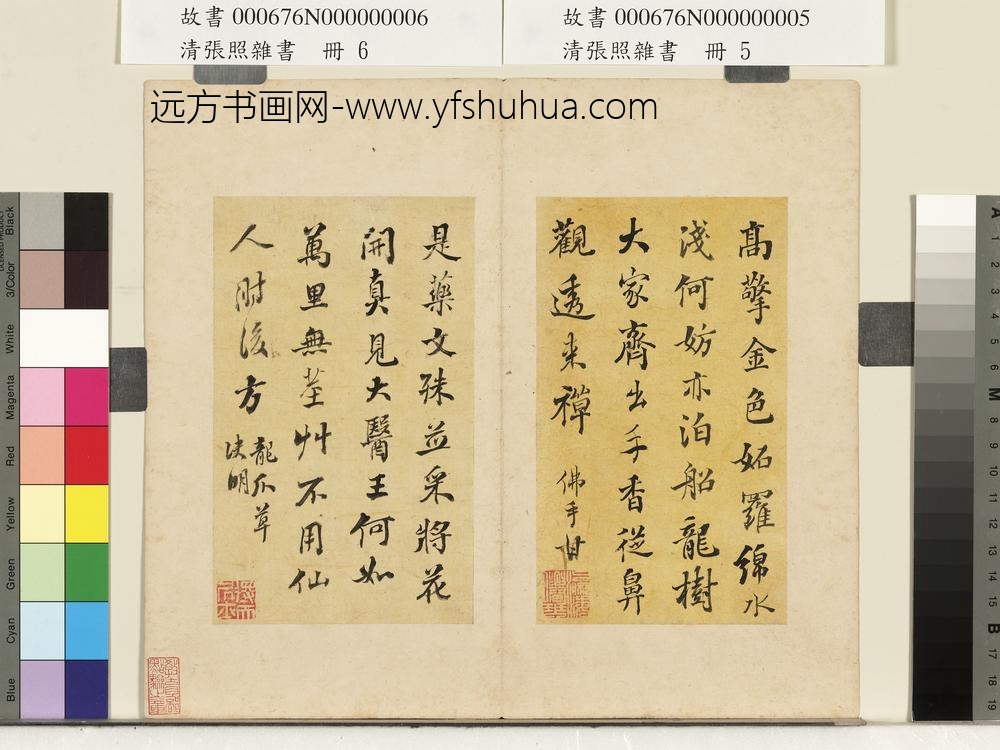 故書 000676N000000006
清張照雜書　冊 6
故書 000676N000000005
清張照雜書　冊 5
远方书画网-www.yfshuhua.com
高擎金色妬羅綿水
淺何妨亦泊船龍樹
大家齊出手香從鼻
觀透來禪
佛手甘
是藥文殊並采將花
開真見大醫王何如
萬里無荃艸不用仙
人肘後方
龍爪草
决明
3/Color
Black
White
Magenta
Red
Yellow
Green
Cyan
Blue
A
1
2
3
4
5
M
8
9
10
11
12
13
14
15
B
17
18
19